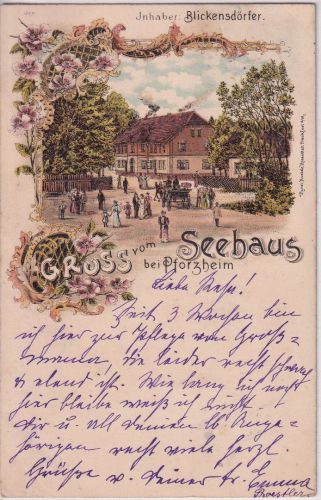 Inhaber: Blickensdörfer.
Gruss vom Seehaus
bei Pforzheim
Liebe
Seit 3 Wochen bin
ich hier zur Pflege von Groß-
mama, die leider recht schwach
& elend ist. Wie lang ich noch
hier bleibe weiß ich nicht.
Dir u. all deinen lb. Ange-
hörigen recht viele herzl.
Grüße v. Deiner tr. Emma